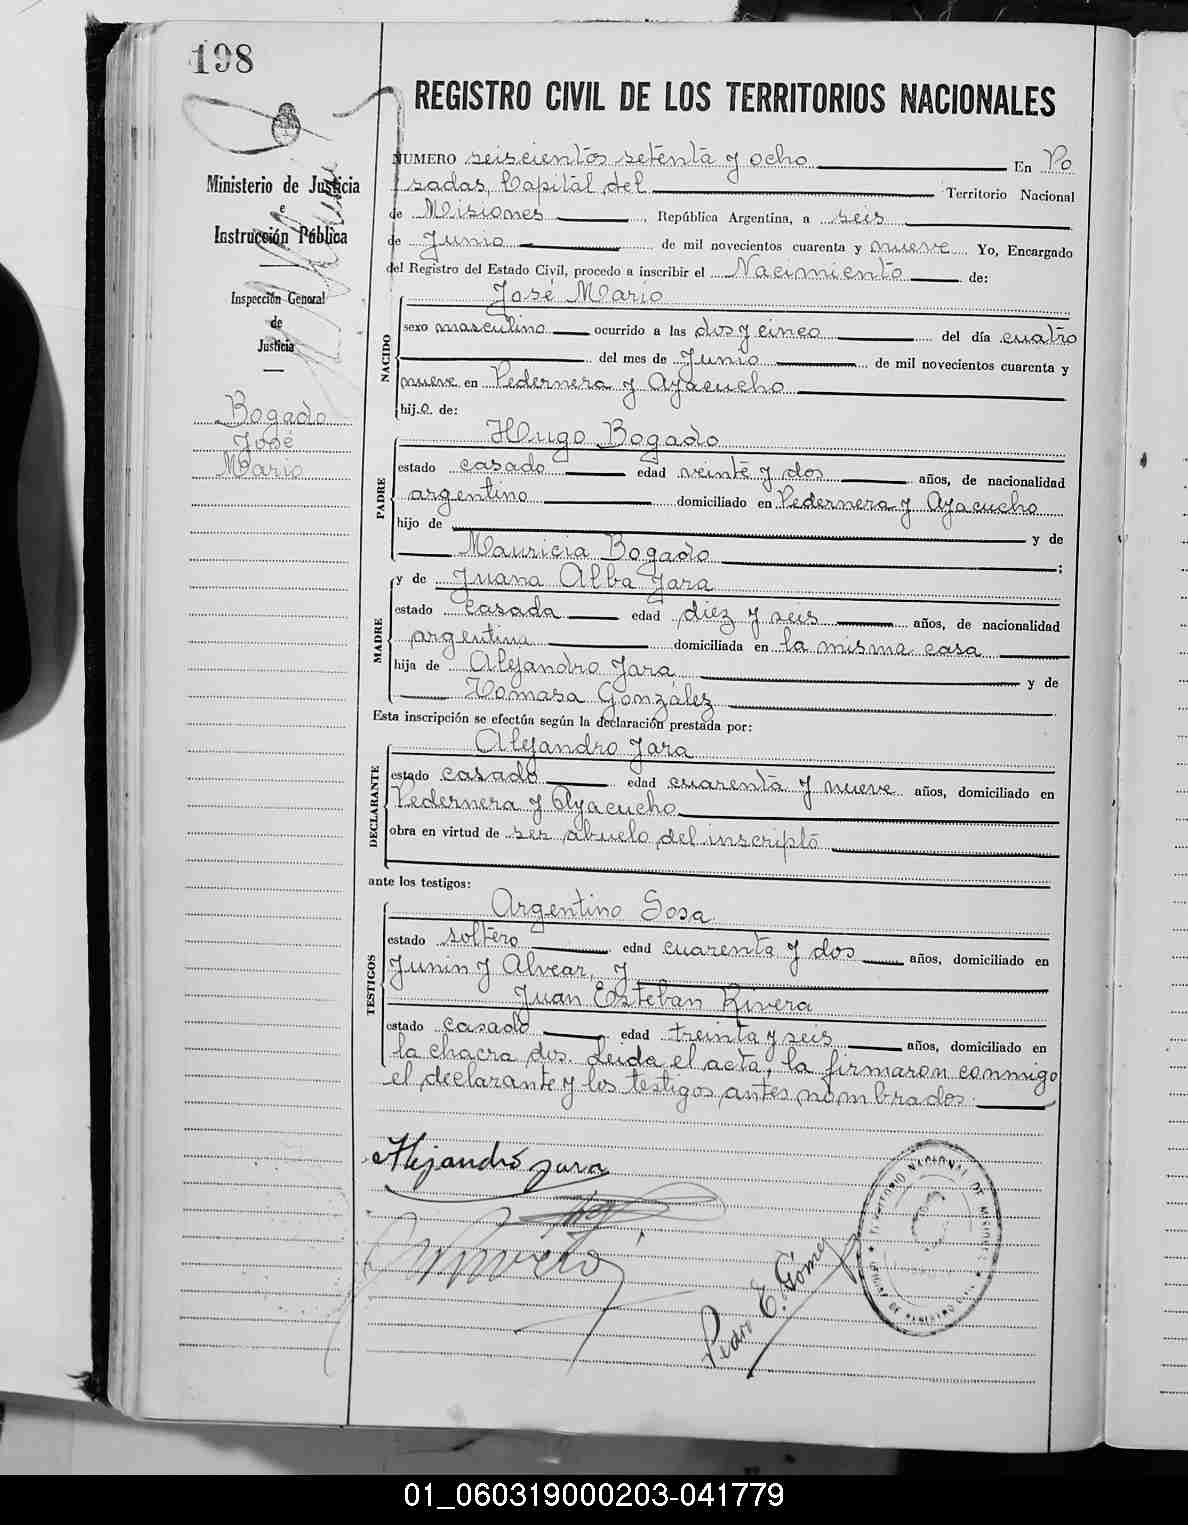 198
REGISTRO CIVIL DE LOS TERRITORIOS NACIONALES
Ministerio de Justicia
e
Instrucción Pública
Inspección General
de
Justicia
Bogado
José
Mario
NUMERO seiscientos setenta y ocho En Po
sadas, Capital del Territorio Nacional
de Misiones, República Argentina, a seis
de Junio de mil novecientos cuarenta y nueve Yo, Encargado
del Registro del Estado Civil, procedo a inscribir el Nacimiento de:
NACIDO
José Mario
sexo masculino ocurrido a las dos y cinco del día cuatro
del mes de Junio de mil novecientos cuarenta y
nueve en Pedernera y Ayacucho
hijo de:
PADRE
Hugo Bogado
estado casado edad veinte y dos años, de nacionalidad
argentino domiciliado en Pedernera y Ayacucho
hijo de y de
Mauricia Bogado;
MADRE
y de Juana Alba Jara
estado casada edad diez y seis años, de nacionalidad
argentina domiciliada en la misma casa
hija de Alejandro Jara y de
Tomasa González
Esta inscripción se efectúa según la declaración prestada por:
DECLARANTE
Alejandro Jara
estado casado edad cuarenta y nueve años, domiciliado en
Pedernera y Ayacucho
obra en virtud de ser abuelo del inscripto
ante los testigos:
TESTIGOS
Argentino Sosa
estado soltero edad cuarenta y dos años, domiciliado en
Junin y Alvear, y
Juan Esteban Rivera
estado casado edad treinta y seis años, domiciliado en
la chacra dos. Leida el acta, la firmaron conmigo
el declarante y los testigos antes nombrados.
Alejandro Jara
Pedro E. Gómez
TERRITORIO NACIONAL DE MISIONES
01_060319000203-041779